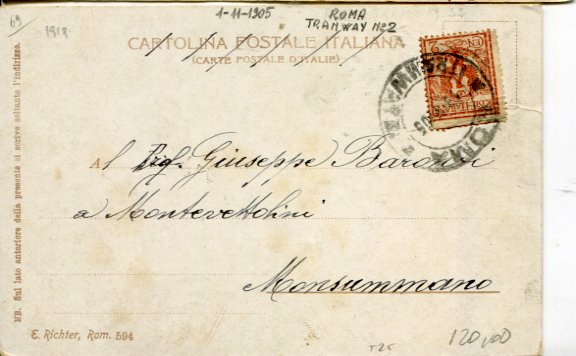 69
1918
1-11-1905
ROMA
TRAMWAY No2
CARTOLINA POSTALE ITALIANA
(CARTE POSTALE D'ITALIE)
Al Prof. Giuseppe Baronti
a Montevettolini
Monsummano
NB. Sul lato anteriore della presente si scrive soltanto l'indirizzo.
E. Richter, Rom. 594
120,00